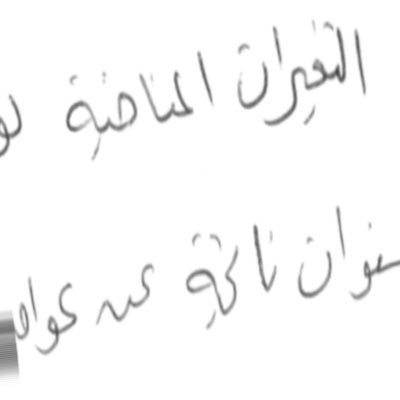 التغيرات المناخية
سنوان ناتجة عن عوا